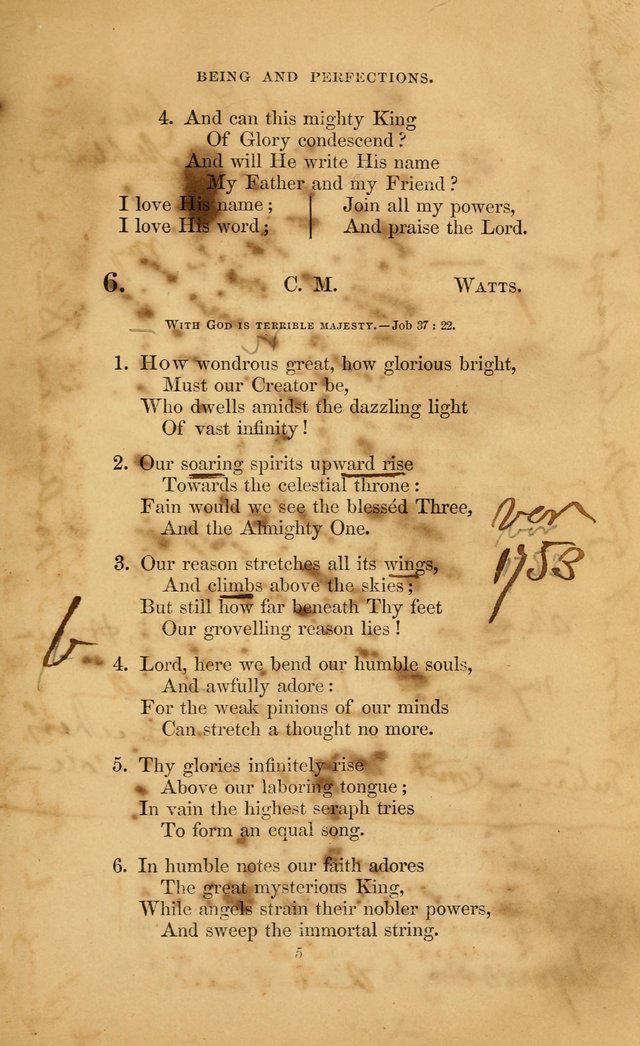 BEING AND PERFECTIONS.
4. And can this mighty King
Of Glory condescend?
And will He write His name
My Father and my Friend?
I love His name; | Join all my powers,
I love His word; | And praise the Lord.
6. C. M. WATTS.
WITH GOD IS TERRIBLE MAJESTY.—Job 37 : 22.
1. How wondrous great, how glorious bright,
Must our Creator be,
Who dwells amidst the dazzling light
Of vast infinity!
2. Our soaring spirits upward rise
Towards the celestial throne:
Fain would we see the blesséd Three,
And the Almighty One.
ver
1753
3. Our reason stretches all its wings,
And climbs above the skies;
But still how far beneath Thy feet
Our grovelling reason lies!
b
4. Lord, here we bend our humble souls,
And awfully adore:
For the weak pinions of our minds
Can stretch a thought no more.
5. Thy glories infinitely rise
Above our laboring tongue;
In vain the highest seraph tries
To form an equal song.
6. In humble notes our faith adores
The great mysterious King,
While angels strain their nobler powers,
And sweep the immortal string.
5